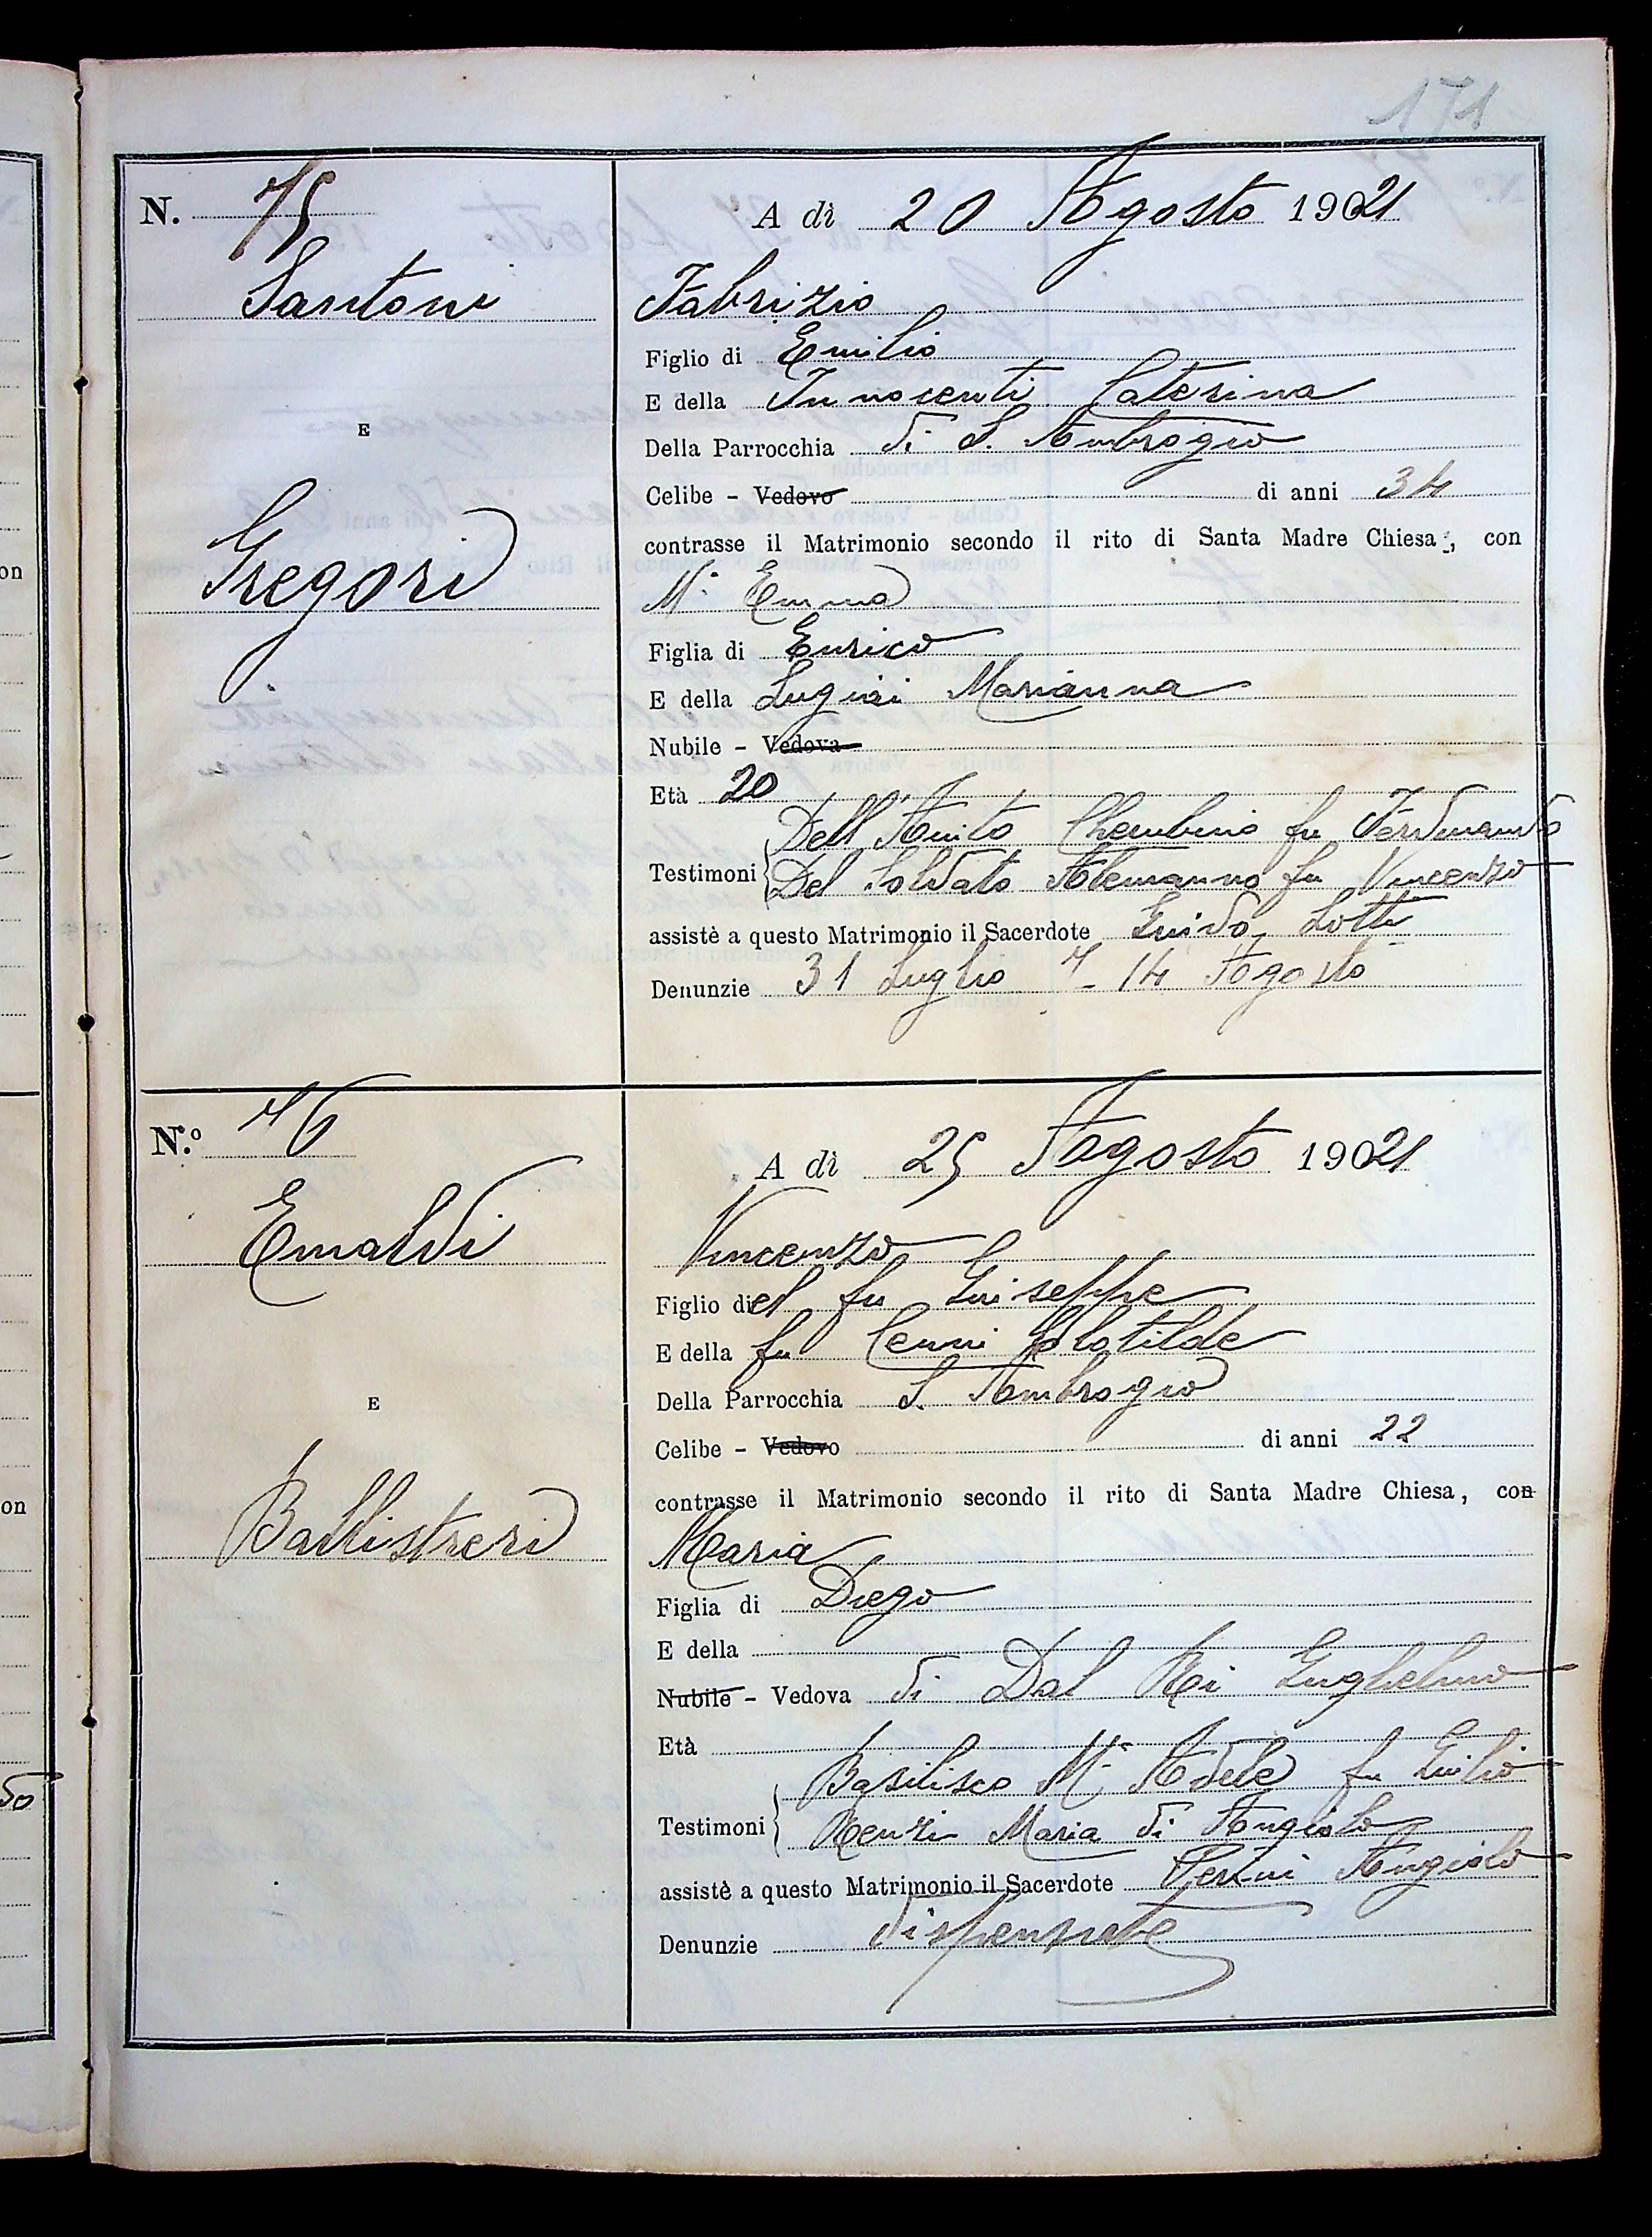 171
N. 75
A dì 20 Agosto 1921
Santoni
Fabrizio
Figlio di Emilio
E della Innocenti Caterina
Della Parrocchia di S. Ambrogio
E
Celibe - Vedovo di anni 34
contrasse il Matrimonio secondo il rito di Santa Madre Chiesa, con
Gregori
Mª Emma
Figlia di Enrico
E della Lugini Marianna
Nubile - Vedova
Età 20
Dell'Amito Cherubino fu Ferdinando
Testimoni Del Soldato Alemanno fu Vincenzo
assistè a questo Matrimonio il Sacerdote Guido Lotti
Denunzie 31 Luglio 7 - 14 Agosto
N.º 76
A dì 25 Agosto 1921
Emaldi
Vincenzo
Figlio del fu Giuseppe
E della fu Cenni Clotilde
Della Parrocchia S. Ambrogio
E
Celibe - Vedovo di anni 22
contrasse il Matrimonio secondo il rito di Santa Madre Chiesa, con
Ballistreri
Maria
Figlia di Diego
E della
Nubile - Vedova di Dal Rei Guglielmo
Età
Basilisco Mª Adele fu Giulio
Testimoni Renzi Maria di Angiolo
assistè a questo Matrimonio il Sacerdote Angiolo
Denunzie dispensate
on
on
50